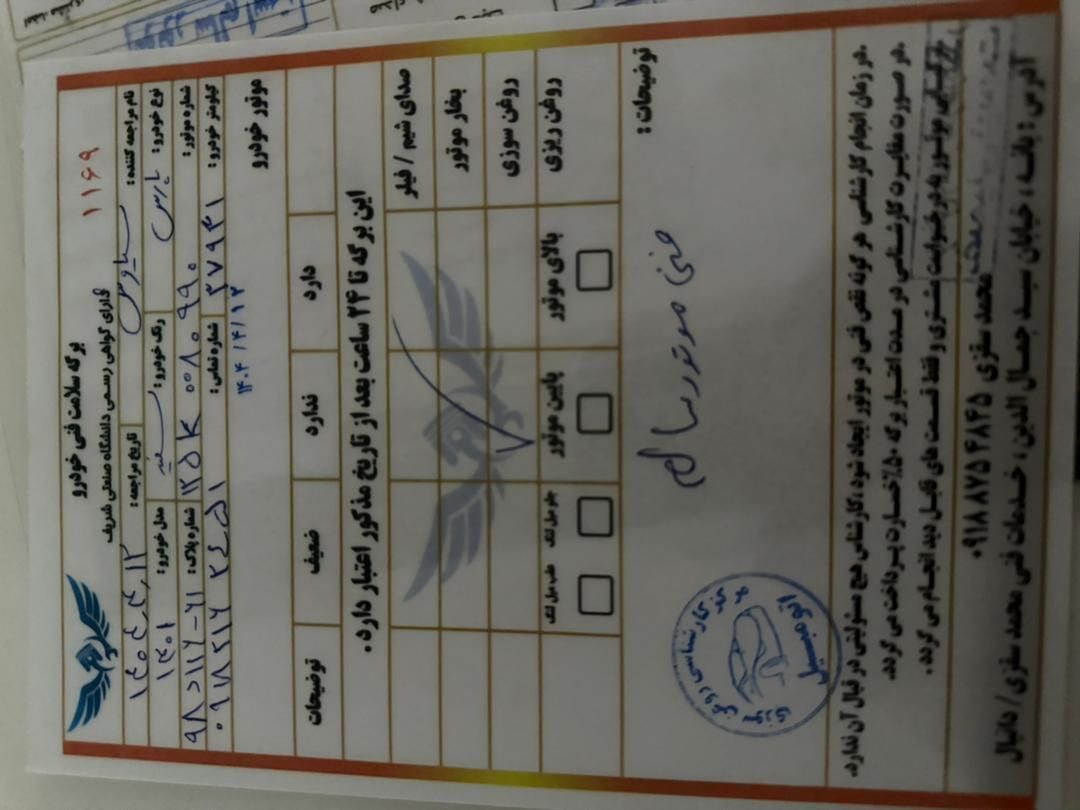 برگه سلامت فنی خودرو
دارای گواهی رسمی دانشگاه صنعتی شریف
۱۱۶۹
نام مراجعه کننده: سیاوش تاریخ مراجعه: ۱۴۰۴,۴,۱۲
نوع خودرو: پارس رنگ خودرو: سفید مدل خودرو: ۱۴۰۱
شماره موتور: ۱۲۵K۰۰۸۰۹۹۰ شماره پلاک:
کیلومتر خودرو: ۳۷۹۴۱ شماره تماس:
۱۴۰۴/۴/۱۲
موتور خودرو
دارد ندارد ضعیف توضیحات
این برگه تا ۲۴ ساعت بعد از تاریخ مذکور اعتبار دارد.
صدای شیم / فیلر
بخار موتور
روغن سوزی
روغن ریزی بالای موتور پایین موتور جلو میل لنگ عقب میل لنگ
توضیحات:
فنی موتور سالم
کارشناسی روغن سوزی
اتومبیل
در زمان انجام کارشناسی هر گونه نقص فنی در موتور ایجاد شود، کارشناس هیچ مسئولیتی در قبال آن ندارد.
در صورت مغایرت کارشناسی در مدت اعتبار برگه ۵۰٪ خسارت پرداخت می گردد.
موتور به درخواست مشتری و فقط قسمت های قابل دید انجام می گردد.
محمد سقزی ۰۹۱۸۸۷۵۴۸۴۵
آدرس: بانه، خیابان سید جمال الدین، خدمات فنی محمد سقزی / دانیال